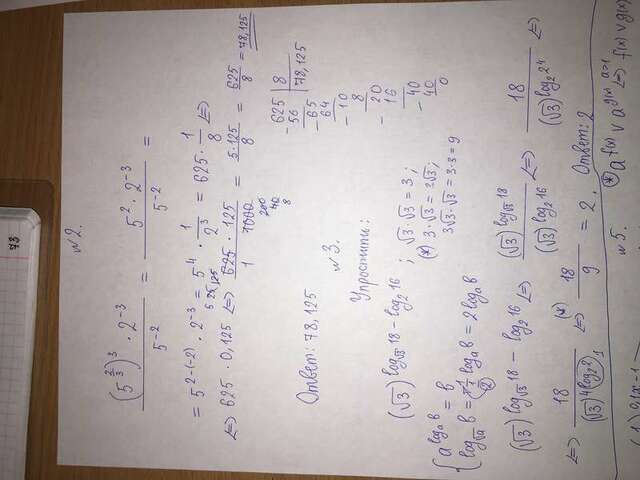 73
№2.
(5^(2/3))^3 · 2^-3 / 5^-2 = 5^2 · 2^-3 / 5^-2 =
= 5^(2-(-2)) · 2^-3 = 5^4 · 1/2^3 = 625 · 1/8 <=>
<=> 625 · 0,125 <=> 625 · 125 / 1 1000 = 5·125/8 = 625/8 = 78,125
200
40
8
Ответ: 78,125
625 | 8
56 | 78,125
-65
64
-10
8
-20
16
-40
40
0
№3.
Упростить:
(√3)^(log_√3 18 - log_2 16) ; √3 · √3 = 3 ;
(*) 3 · √3 = 3√3 ;
3√3 · √3 = 3·3 = 9
{ a^(log_a b) = b
log_√a b = 1/(1/2) log_a b = 2 log_a b
(√3)^(log_√3 18 - log_2 16) <=> (√3)^(log_√3 18) / (√3)^(log_2 16) <=> 18 / (√3)^(log_2 2^4) <=>
<=> 18 / (√3)^(4 log_2 2) 1 <=> (*) 18/9 = 2. Ответ: 2
№5. (*) a^f(x) ∨ a^g(x) a>1 <=> f(x) ∨ g(x)